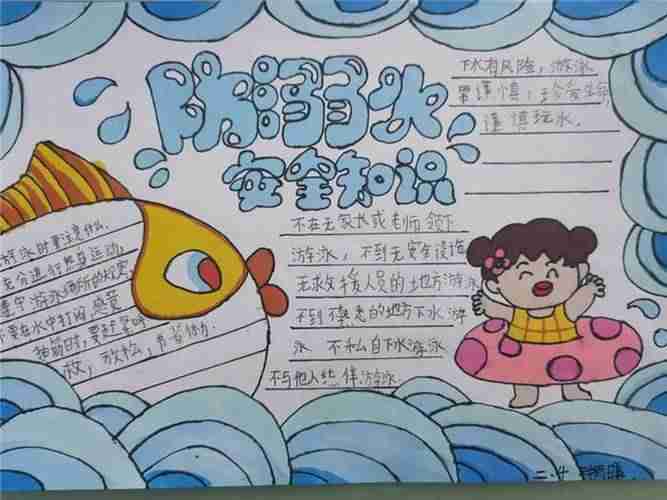 防溺水
安全知识
下水有风险，游泳
需谨慎；珍爱生命，
谨慎玩水。
不在无家长或老师领下
游泳，不到无安全设施
无救援人员的地方游泳
不到熟悉的地方下水游
泳 不私自下水游泳
不与他人结伴游泳
游泳时要注意什么
充分进行热身运动，
遵守游泳场所的规定，
不要在水中打闹，感觉
抽筋时，要赶紧呼
救，放松，节省体力
二·